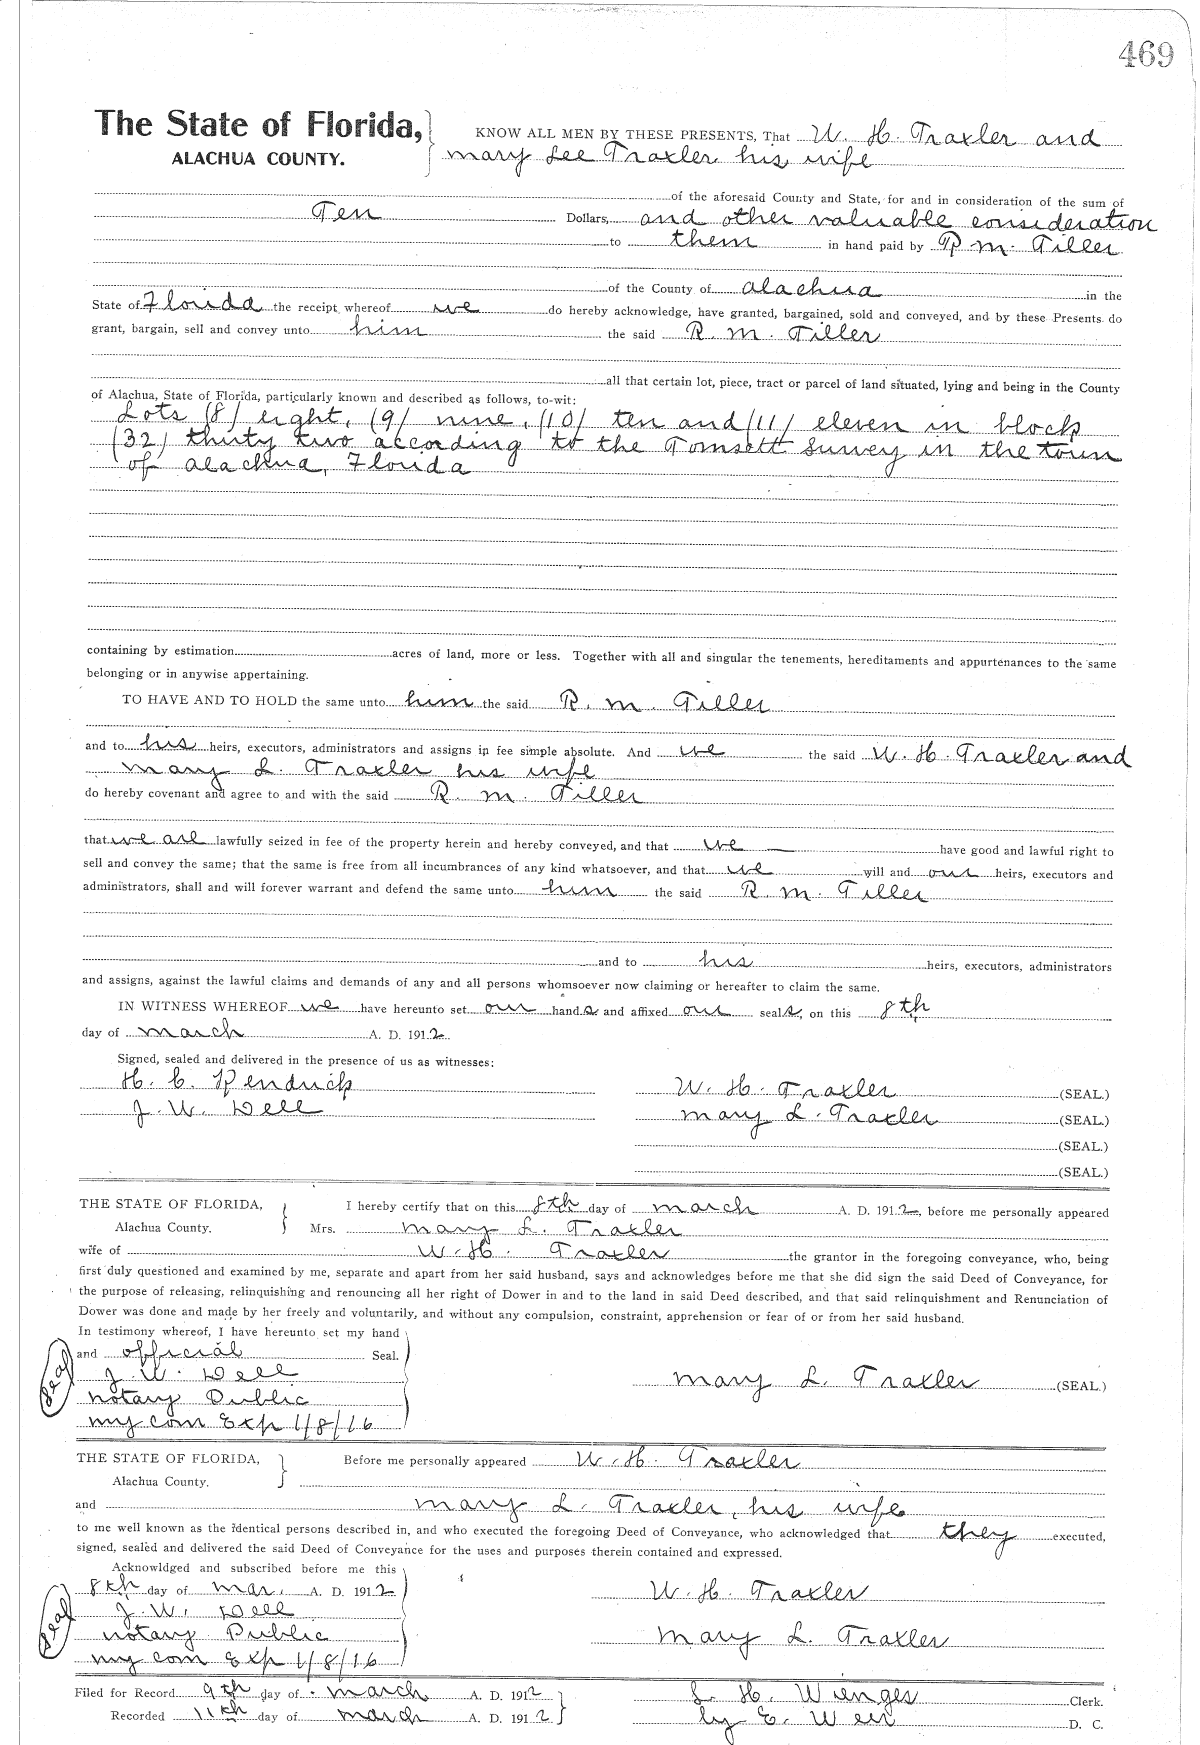 469
The State of Florida, KNOW ALL MEN BY THESE PRESENTS, That W. H. Traxler and
ALACHUA COUNTY. Mary Lee Traxler his wife
of the aforesaid County and State, for and in consideration of the sum of
Ten Dollars, and other valuable consideration
to them in hand paid by R. M. Tiller
of the County of Alachua in the
State of Florida the receipt whereof we do hereby acknowledge, have granted, bargained, sold and conveyed, and by these Presents do
grant, bargain, sell and convey unto him the said R. M. Tiller
all that certain lot, piece, tract or parcel of land situated, lying and being in the County
of Alachua, State of Florida, particularly known and described as follows, to-wit:
Lots (8) eight, (9) nine, (10) ten and (11) eleven in block
(32) thirty two according to the Tomsett Survey in the town
of Alachua, Florida
containing by estimation acres of land, more or less. Together with all and singular the tenements, hereditaments and appurtenances to the same
belonging or in anywise appertaining.
TO HAVE AND TO HOLD the same unto him the said R. M. Tiller
and to his heirs, executors, administrators and assigns in fee simple absolute. And we the said W. H. Traxler and
Mary L. Traxler his wife
do hereby covenant and agree to and with the said R. M. Tiller
that we are lawfully seized in fee of the property herein and hereby conveyed, and that we have good and lawful right to
sell and convey the same; that the same is free from all incumbrances of any kind whatsoever, and that we will and our heirs, executors and
administrators, shall and will forever warrant and defend the same unto him the said R. M. Tiller
and to his heirs, executors, administrators
and assigns, against the lawful claims and demands of any and all persons whomsoever now claiming or hereafter to claim the same.
IN WITNESS WHEREOF we have hereunto set our hands and affixed our seals, on this 8th
day of March A. D. 1912
Signed, sealed and delivered in the presence of us as witnesses:
H. C. Renduck W. H. Traxler (SEAL.)
J. W. Dell Mary L. Traxler (SEAL.)
(SEAL.)
(SEAL.)
THE STATE OF FLORIDA, I hereby certify that on this 8th day of March A. D. 1912, before me personally appeared
Alachua County. Mrs. Mary L. Traxler
wife of W. H. Traxler the grantor in the foregoing conveyance, who, being
first duly questioned and examined by me, separate and apart from her said husband, says and acknowledges before me that she did sign the said Deed of Conveyance, for
the purpose of releasing, relinquishing and renouncing all her right of Dower in and to the land in said Deed described, and that said relinquishment and Renunciation of
Dower was done and made by her freely and voluntarily, and without any compulsion, constraint, apprehension or fear of or from her said husband.
In testimony whereof, I have hereunto set my hand
and official Seal.
Seal J. W. Dell Mary L. Traxler (SEAL.)
Notary Public
My com Exp 1/8/16
THE STATE OF FLORIDA, Before me personally appeared W. H. Traxler
Alachua County.
and Mary L. Traxler, his wife
to me well known as the identical persons described in, and who executed the foregoing Deed of Conveyance, who acknowledged that they executed,
signed, sealed and delivered the said Deed of Conveyance for the uses and purposes therein contained and expressed.
Acknowldged and subscribed before me this
8th day of Mar. A. D. 1912 W. H. Traxler
Seal J. W. Dell
Notary Public Mary L. Traxler
My com Exp 1/8/16
Filed for Record 9th day of March A. D. 1912 S. H. Wienges Clerk.
Recorded 11th day of March A. D. 1912 by E. Weir D. C.